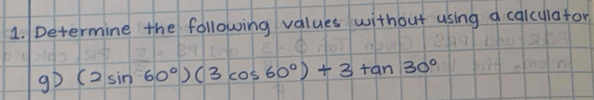 1. Determine the following values without using a calculator
g) (2 sin 60°)(3 cos 60°) + 3 tan 30°